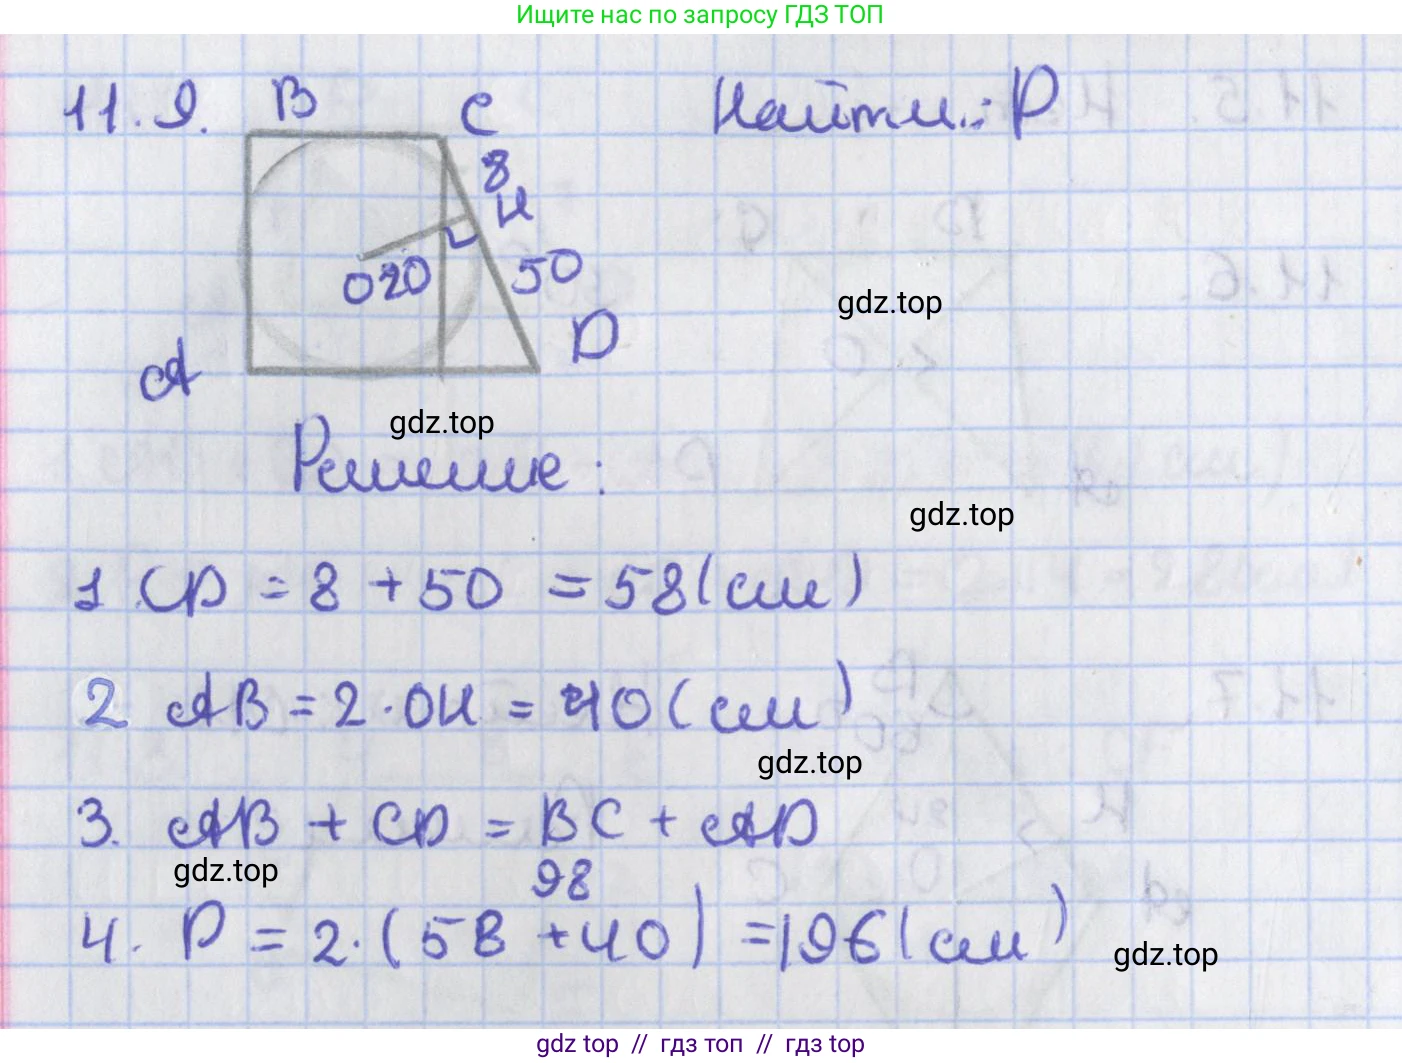 Ищите нас по запросу ГДЗ ТОП
11.9. B C Найти: P
8
H
O 20 50
gdz.top
D
A
gdz.top
Решение:
gdz.top
1 CD = 8 + 50 = 58 (см)
2 AB = 2·OH = 40 (см)
gdz.top
3. AB + CD = BC + AD
gdz.top
98
4. P = 2·(58 + 40) = 196 (см)
gdz.top
gdz top // гдз топ // гдз top